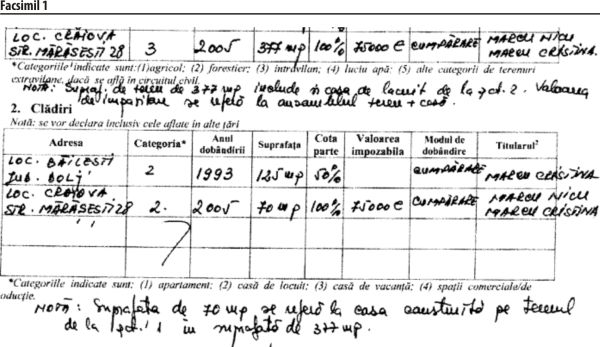 Facsimil 1
LOC. CRAIOVA
STR. MĂRĂSESTI 28 3 2005 377 mp 100% 75000 € CUMPĂRARE MARCU NICU
MARCU CRISTINA
*Categoriile indicate sunt: (1) agricol; (2) forestier; (3) intravilan; (4) luciu apă; (5) alte categorii de terenuri
extravilane, dacă se află în circuitul civil.
NOTĂ: Supraf. de teren de 377 mp include și casa de locuit de la pct. 2. Valoarea
de impozitare se referă la ansamblul teren + casă.
2. Clădiri
Notă: se vor declara inclusiv cele aflate în alte țări
Adresa Categoria* Anul dobândirii Suprafața Cota parte Valoarea impozabila Modul de dobândire Titularul²
LOC. BĂILESTI
JUD. DOLJ 2 1993 125 mp 50% CUMPĂRARE MARCU CRISTINA
LOC. CRAIOVA
STR. MĂRĂSESTI 28 2. 2005 70 mp 100% 75000 € CUMPĂRARE MARCU NICU
MARCU CRISTINA
*Categoriile indicate sunt: (1) apartament; (2) casă de locuit; (3) casă de vacanță; (4) spații comerciale/de
oducție.
NOTĂ: Suprafața de 70 mp se referă la casa construită pe terenul
de la pct. 1 în suprafață de 377 mp.